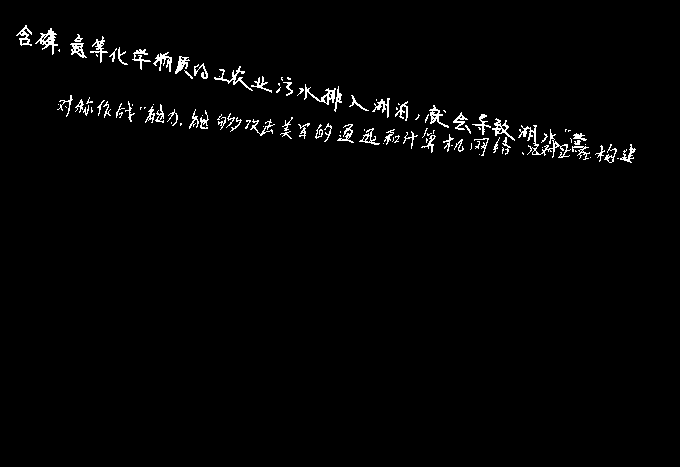 含磷、氮等化学物质的工农业污水排入湖泊，就会导致湖水“
对称作战”能力，能够攻击美军的通迅和计算机网络，这对正在构建